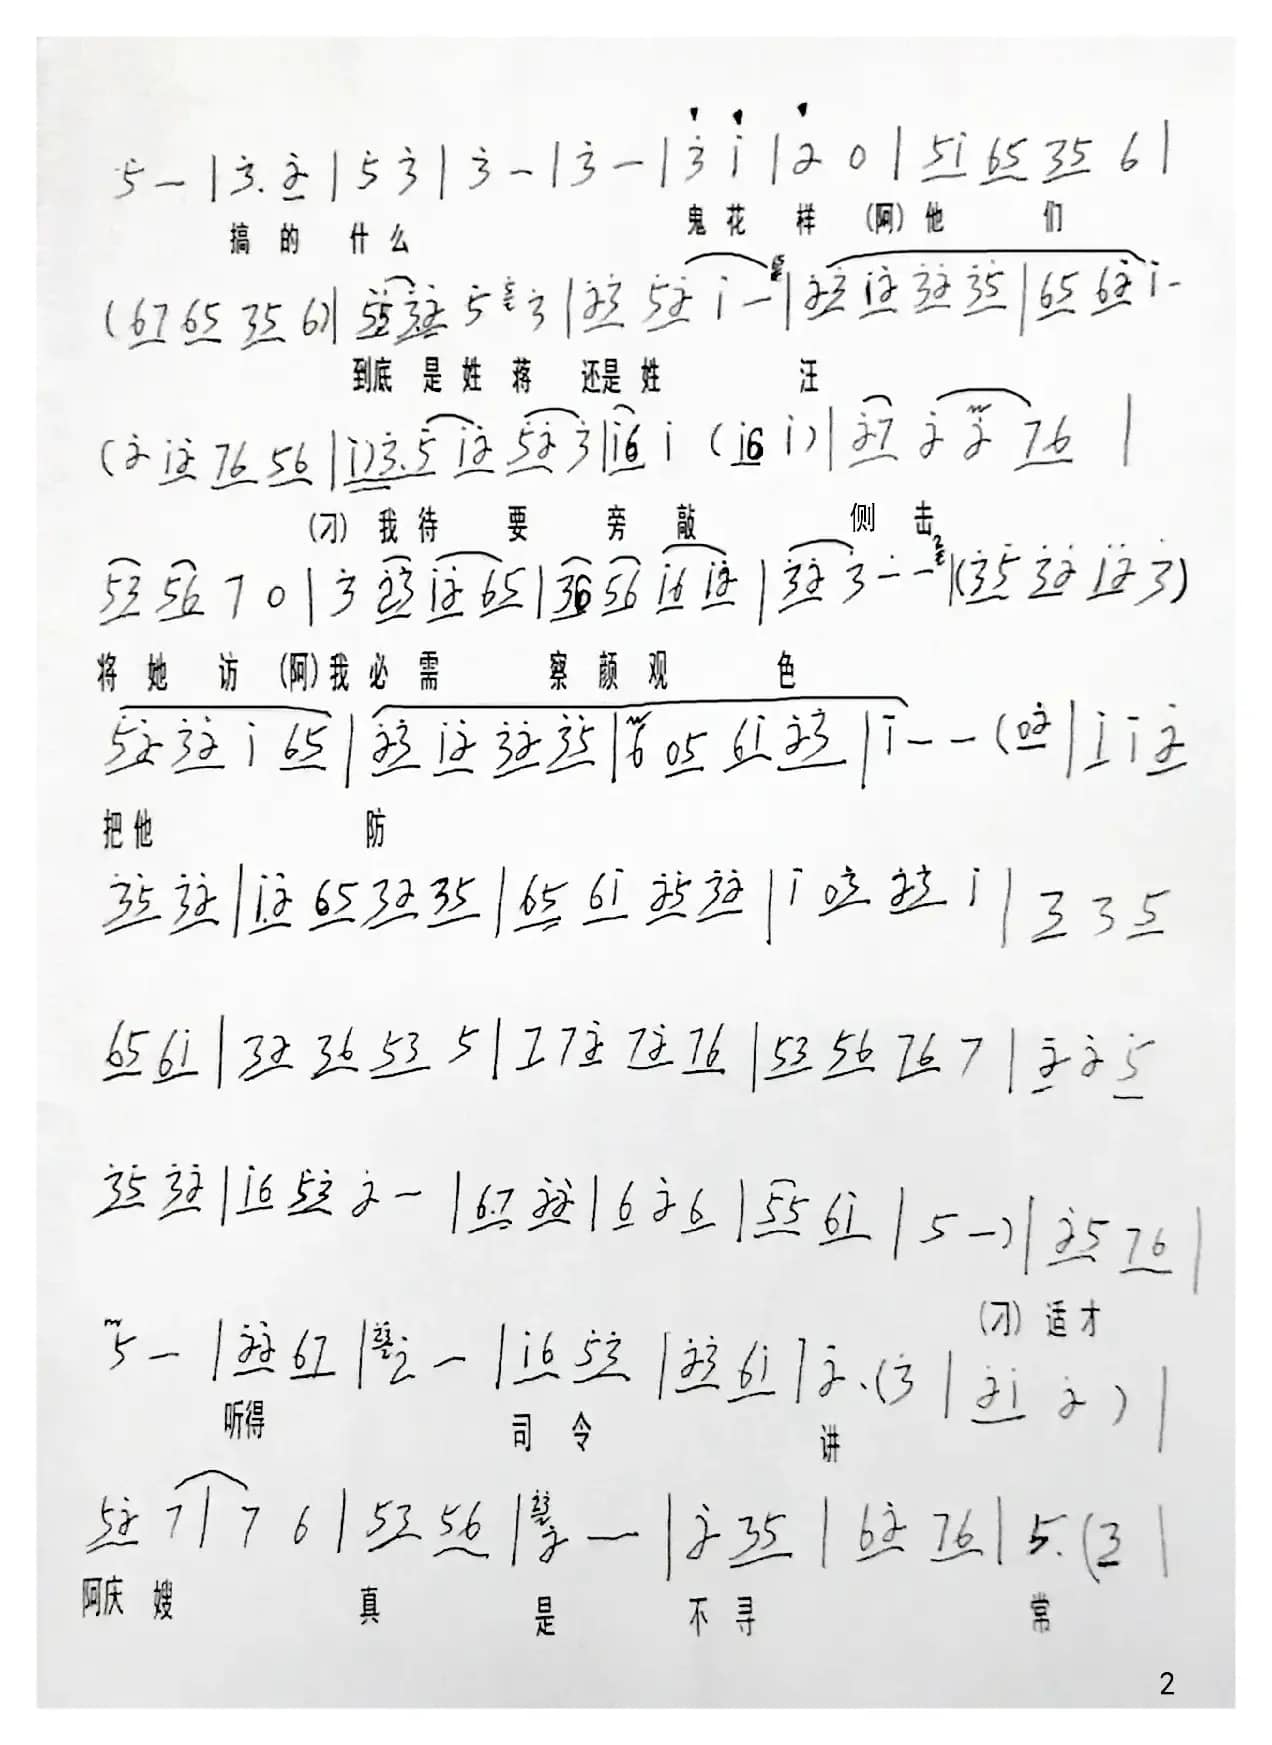 5 — | 3̇. 2̇ | 5 3̇ | 3̇ — | 3̇ — | 3̇ i | 2̇ 0 | 5i 65 35 6 |
搞的 什么 鬼花 样 (阿)他 们
(67 65 35 6)| 55 3̇2̇ 5 3̇ | 2̇3̇ 52̇ i — | 2̇3̇ i2̇ 3̇2̇ 3̇5 | 65 62̇ i -
到底 是姓 蒋 还是 姓 汪
(2̇ i2̇ 76 56 | i)3̇.5 i2̇ 52̇ 3̇ | i6 i (i6 i) | 2̇7 2̇ 2̇ 76 |
(刁) 我待 要 旁 敲 侧 击
53 56 7 0 | 3̇ 2̇3̇ i2̇ 65 | 36 56 i6 i2̇ | 3̇2̇ 3̇ - - | (3̇5 3̇2̇ i2̇ 3̇)
将 她 访 (阿)我 必 需 察 颜 观 色
52̇ 3̇2̇ i 65 | 2̇3̇ i2̇ 3̇2̇ 3̇5 | 6 05 6i 2̇3̇ | i — — (02̇ | i i 2̇
把他 防
3̇5 3̇2̇ | i.2̇ 65 3̇2̇ 3̇5 | 65 6i 2̇5 3̇2̇ | i 03̇ 2̇3̇ i | 3 3 5
65 6i | 32 36 53 5 | 7 72̇ 72̇ 76 | 53 56 76 7 | 2̇ 2̇ 5
3̇5 3̇2̇ | i6 53̇ 2̇ — | 6.7 2̇2̇ | 6 2̇ 6 | 55 6i | 5 —) | 2̇5 76 |
(刁) 适才
5 — | 2̇2̇ 67 | 2̇ — | i6 53̇ | 2̇3̇ 6i | 2̇. (3̇ | 2̇i 2̇ ) |
听得 司 令 讲
52̇ 7 | 7 6 | 53 56 | 2̇ — | 2̇ 35 | 62̇ 76 | 5. (3 |
阿庆 嫂 真 是 不 寻 常
2